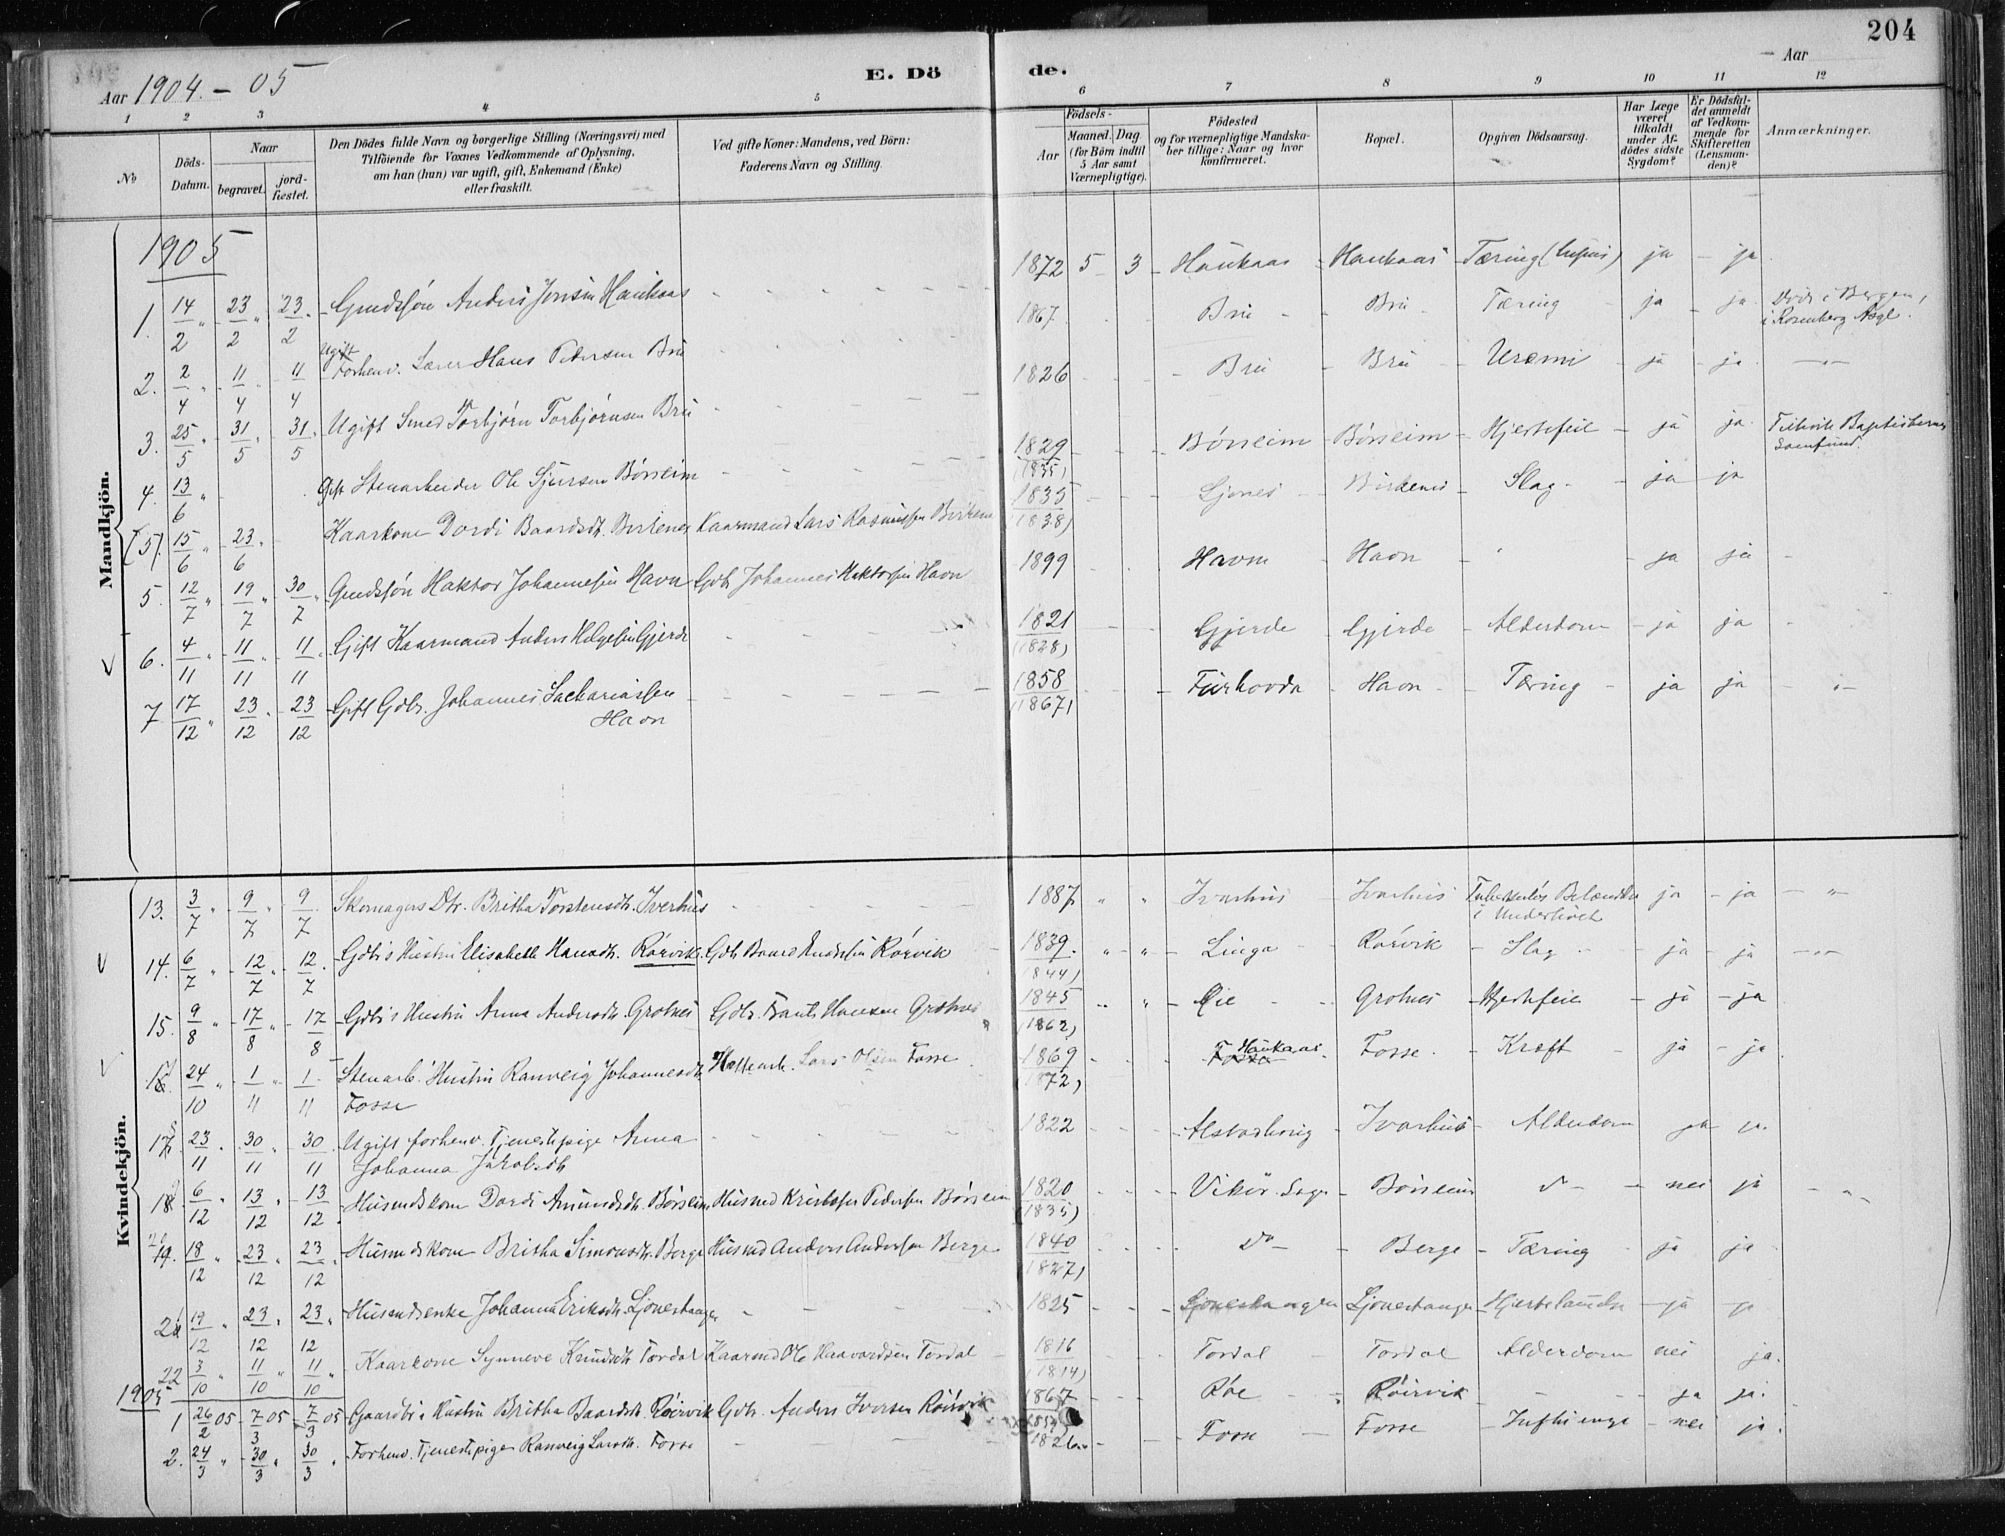 204
Aar 1904.-05
E. Dö
de.
Aar
1 2 3 4 5 6 7 8 9 10 11 12
No
Döds-Datum.
Naar
begravet.
jord-fæstet.
Den Dödes fulde Navn og borgerlige Stilling (Næringsvei) med
Tilföiende for Voxnes Vedkommende af Oplysning,
om han (hun) var ugift, gift, Enkemand (Enke)
eller fraskilt.
Ved gifte Koner: Mandens, ved Börn:
Faderens Navn og Stilling.
Födsels-
Aar
Maaned. Dag
(for Börn indtil
5 Aar samt
Værnepligtige).
Födested
og for værnepligtige Mandska-
ber tillige: Naar og hvor
konfirmeret.
Bopæl.
Opgiven Dödsaarsag.
Har Læge
været
tilkaldt
under Af-
dödes sidste
Sygdom?
Er Dödsfal-
det anmeldt
af Vedkom-
mende for
Skifteretten
(Lensman-
den)?
Anmærkninger.
Mandkjön.
1905
1. 14/2 " 23/2 " 23/2 Gmdssøn Anders Jonsen Haukaas - 1872 5 3 Haukaas Haukaas Tæring (lupus) ja ja
2. 2/4 " 11/4 11/4 Ugift Forhenv. Lærer Hans Pedersen Bru 1867 Bru Bru Tæring ja ja Död i Bergen, i Rosenberg Asyl.
3. 25/5 " 31/5 31/5 Ugift Smed Torbjörn Torbjörnsen Bru 1826 Bru Bru Uremi ja ja -"-
4. 13/6 " Gift Stenarbeider Ole Sjursen Börseim 1829 (1835) Börseim Börseim Hjertefeil ja ja Tilhörte Baptisternes Samfund.
[5]. 15/6 " 23/6 Kaarkone Dordi Baardsdt. Birkenes Kaarmand Lars Rasmussen Birkenes 1835 (1838) Ljones Birkenes Slag ja ja
5. 12/7 " 19/7 " 30/7 " Gmdssøn Haktor Johannessen Havn Gdb. Johannes Haktorsen Havn 1899 Havn Havn " ja ja
6. 4/11 " 11/11 11/11 Gift Kaarmand Anders Helgesen Gjerde 1821 (1828) Gjerde Gjerde Alderdom ja ja
7 17/12 " 23/12 23/12 Gift Gdb. Johannes Sachariassen Havn 1858 (1867) Furhovda Havn Tæring ja ja -"-
Kvindekjön.
13. 3/7 " 9/7 " 9/7 Skomagers Dtr. Britha Torstensdt. Iverhus 1887 " " Ivarhus Ivarhus Tuberkuløs Betændelse i Underlivet ja ja -"-
14. 6/7 " 12/7 " 12/7 Gdb's Hustru Elisabeth Hansdt. Rörvik Gdb Baard Knudsen Rörvik 1839. (1844) " " Linga Rörvik Slag ja ja -"-
15. 9/8 " 17/8 17/8 Gdb's Hustru Anna Andersdt. Grotnes Gdb. Trants Hansen Grotnes 1845 (1862) " " Eie Grotnes Hjertefeil ja ja
17. 24/10 " 1/11 " 1/11 Stenarb. Hustru Ranveig Johannesdt. Fosse Lars Olsen Fosse 1869 (1872) Haukaas Fosse Kræft ja ja
18 23/11 30/11 30/11 Ugift forhenv. Tjenestepige Anna Johanna Jakobsdt 1822 Ivarhus Alderdom ja ja
19 6/12 " 13/12 13/12 Husmdskone Dordi Amundsdt. Börseim Husmd Kristofer Pedersen Börseim 1820 (1835) Vikör Sogn Börseim do nei ja -"-
20 18/12 " 23/12 23/12 Husmdskone Britha Simonsdt. Berge Husmd Anders Andersen Berge 1840 (1827) do Berge Tæring ja ja
21 19/12 " 23/12 23/12 Husmdsenke Johanna Eriksdt. Ljonestangen 1825 Ljonestangen Ljonestangen ja ja
22 3/10 " 11/10 " 11/10 " Kaarkone Synneve Knudsdt Tordal Kaarmd Ole Haavardsen Tordal 1816 (1814) Tordal Tordal Alderdom nei ja.
1905
1 26/2 05 7/3 05 7/3 05 Gaardb's Hustru Britha Baardsdt. Röirvik Gdb. Anders Iversen Röirvik 1867 Röe Röirvik - - ja ja.
2. 24/3 " 30/3 " 30/3 " Forhenv. Tjenestepige Ranveig Larsdt. Fosse 1826 Fosse Fosse Influenza nei ja.